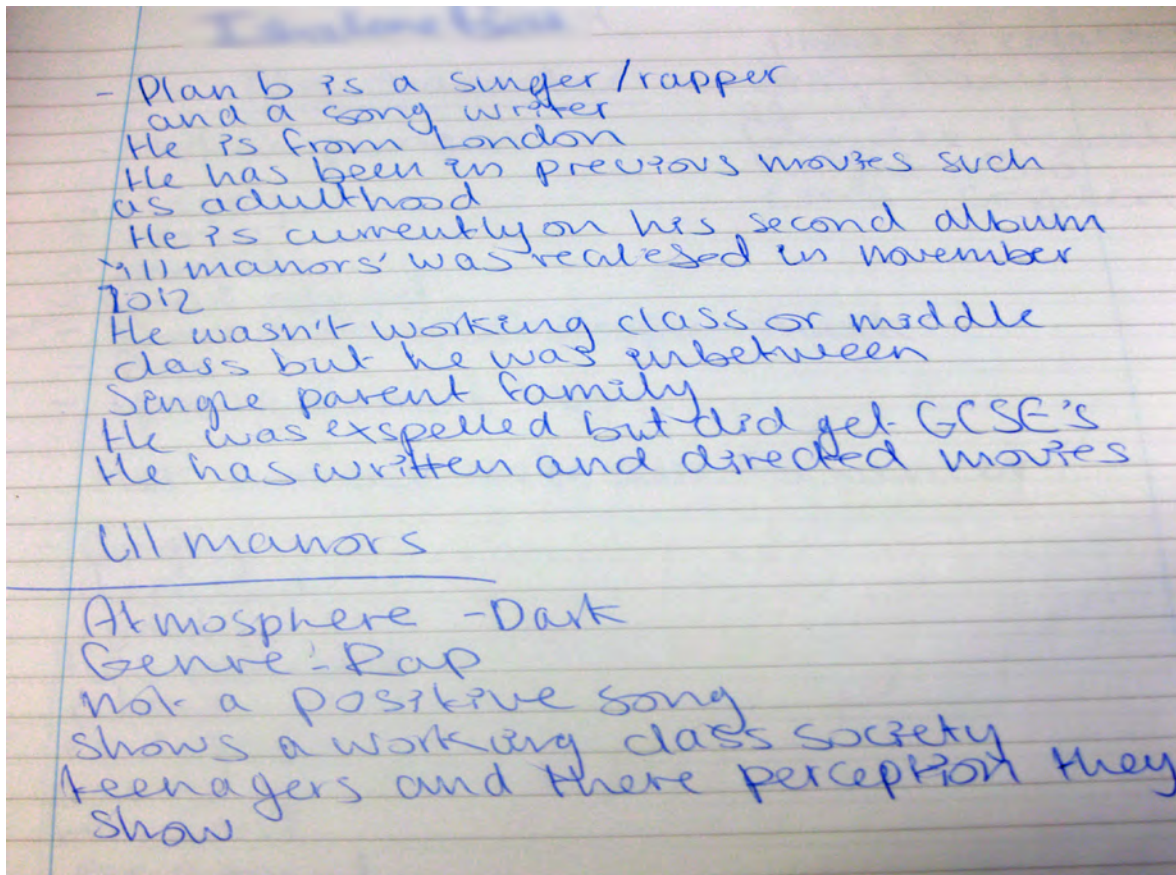 - Plan b is a singer/rapper
and a song writer
He is from London
He has been in previous movies such
as adulthood
He is currently on his second album
'ill manors' was realesed in november
2012
He wasn't working class or middle
class but he was inbetween
Single parent family
He was exspelled but did get GCSE's
He has written and directed movies
Ill manors
Atmosphere - Dark
Genre - Rap
not a positive song
shows a working class society
teenagers and there perception they
show